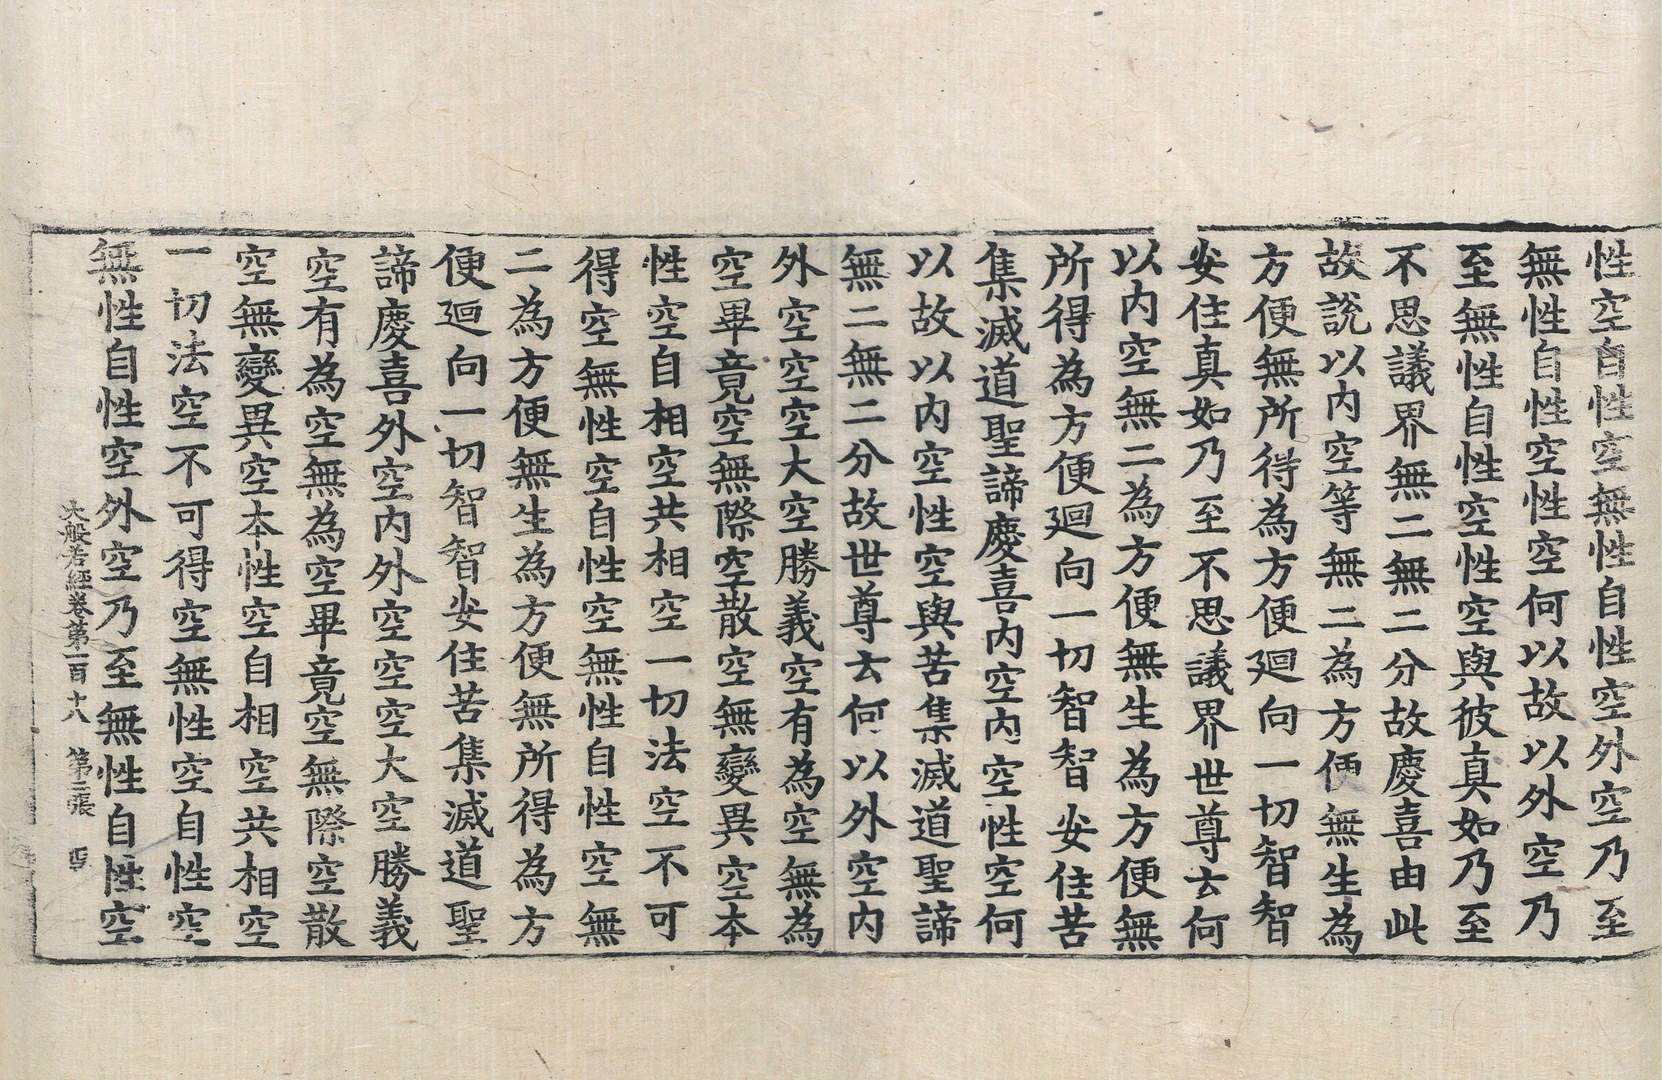 性空自性空無性自性空外空乃至
無性自性空性空何以故以外空乃
至無性自性空性空與彼真如乃至
不思議界無二無二分故慶喜由此
故說以內空等無二為方便無生為
方便無所得為方便廻向一切智智
安住真如乃至不思議界世尊云何
以內空無二為方便無生為方便無
所得為方便廻向一切智智安住苦
集滅道聖諦慶喜內空內空性空何
以故以內空性空與苦集滅道聖諦
無二無二分故世尊云何以外空內
外空空空大空勝義空有為空無為
空畢竟空無際空散空無變異空本
性空自相空共相空一切法空不可
得空無性空自性空無性自性空無
二為方便無生為方便無所得為方
便廻向一切智智安住苦集滅道聖
諦慶喜外空內外空空空大空勝義
空有為空無為空畢竟空無際空散
空無變異空本性空自相空共相空
一切法空不可得空無性空自性空
無性自性空外空乃至無性自性空
大般若經卷第一百十八　第三張